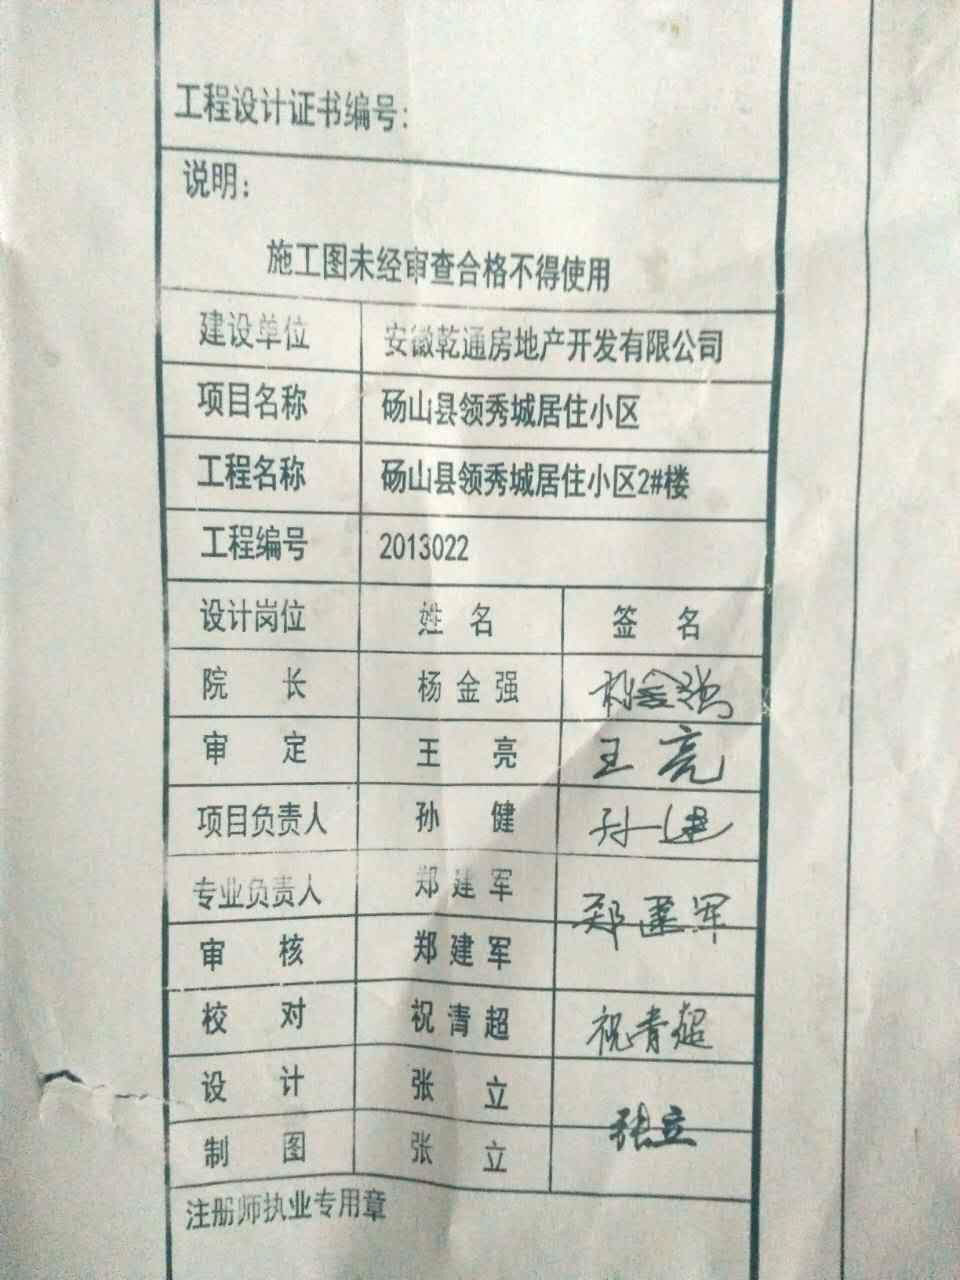 工程设计证书编号:
说明:
施工图未经审查合格不得使用
建设单位 安徽乾通房地产开发有限公司
项目名称 砀山县领秀城居住小区
工程名称 砀山县领秀城居住小区2#楼
工程编号 2013022
设计岗位 姓名 签名
院长 杨金强 杨金强
审定 王亮 王亮
项目负责人 孙健 孙健
专业负责人 郑建军 郑建军
审核 郑建军
校对 祝青超 祝青超
设计 张立 张立
制图 张立
注册师执业专用章